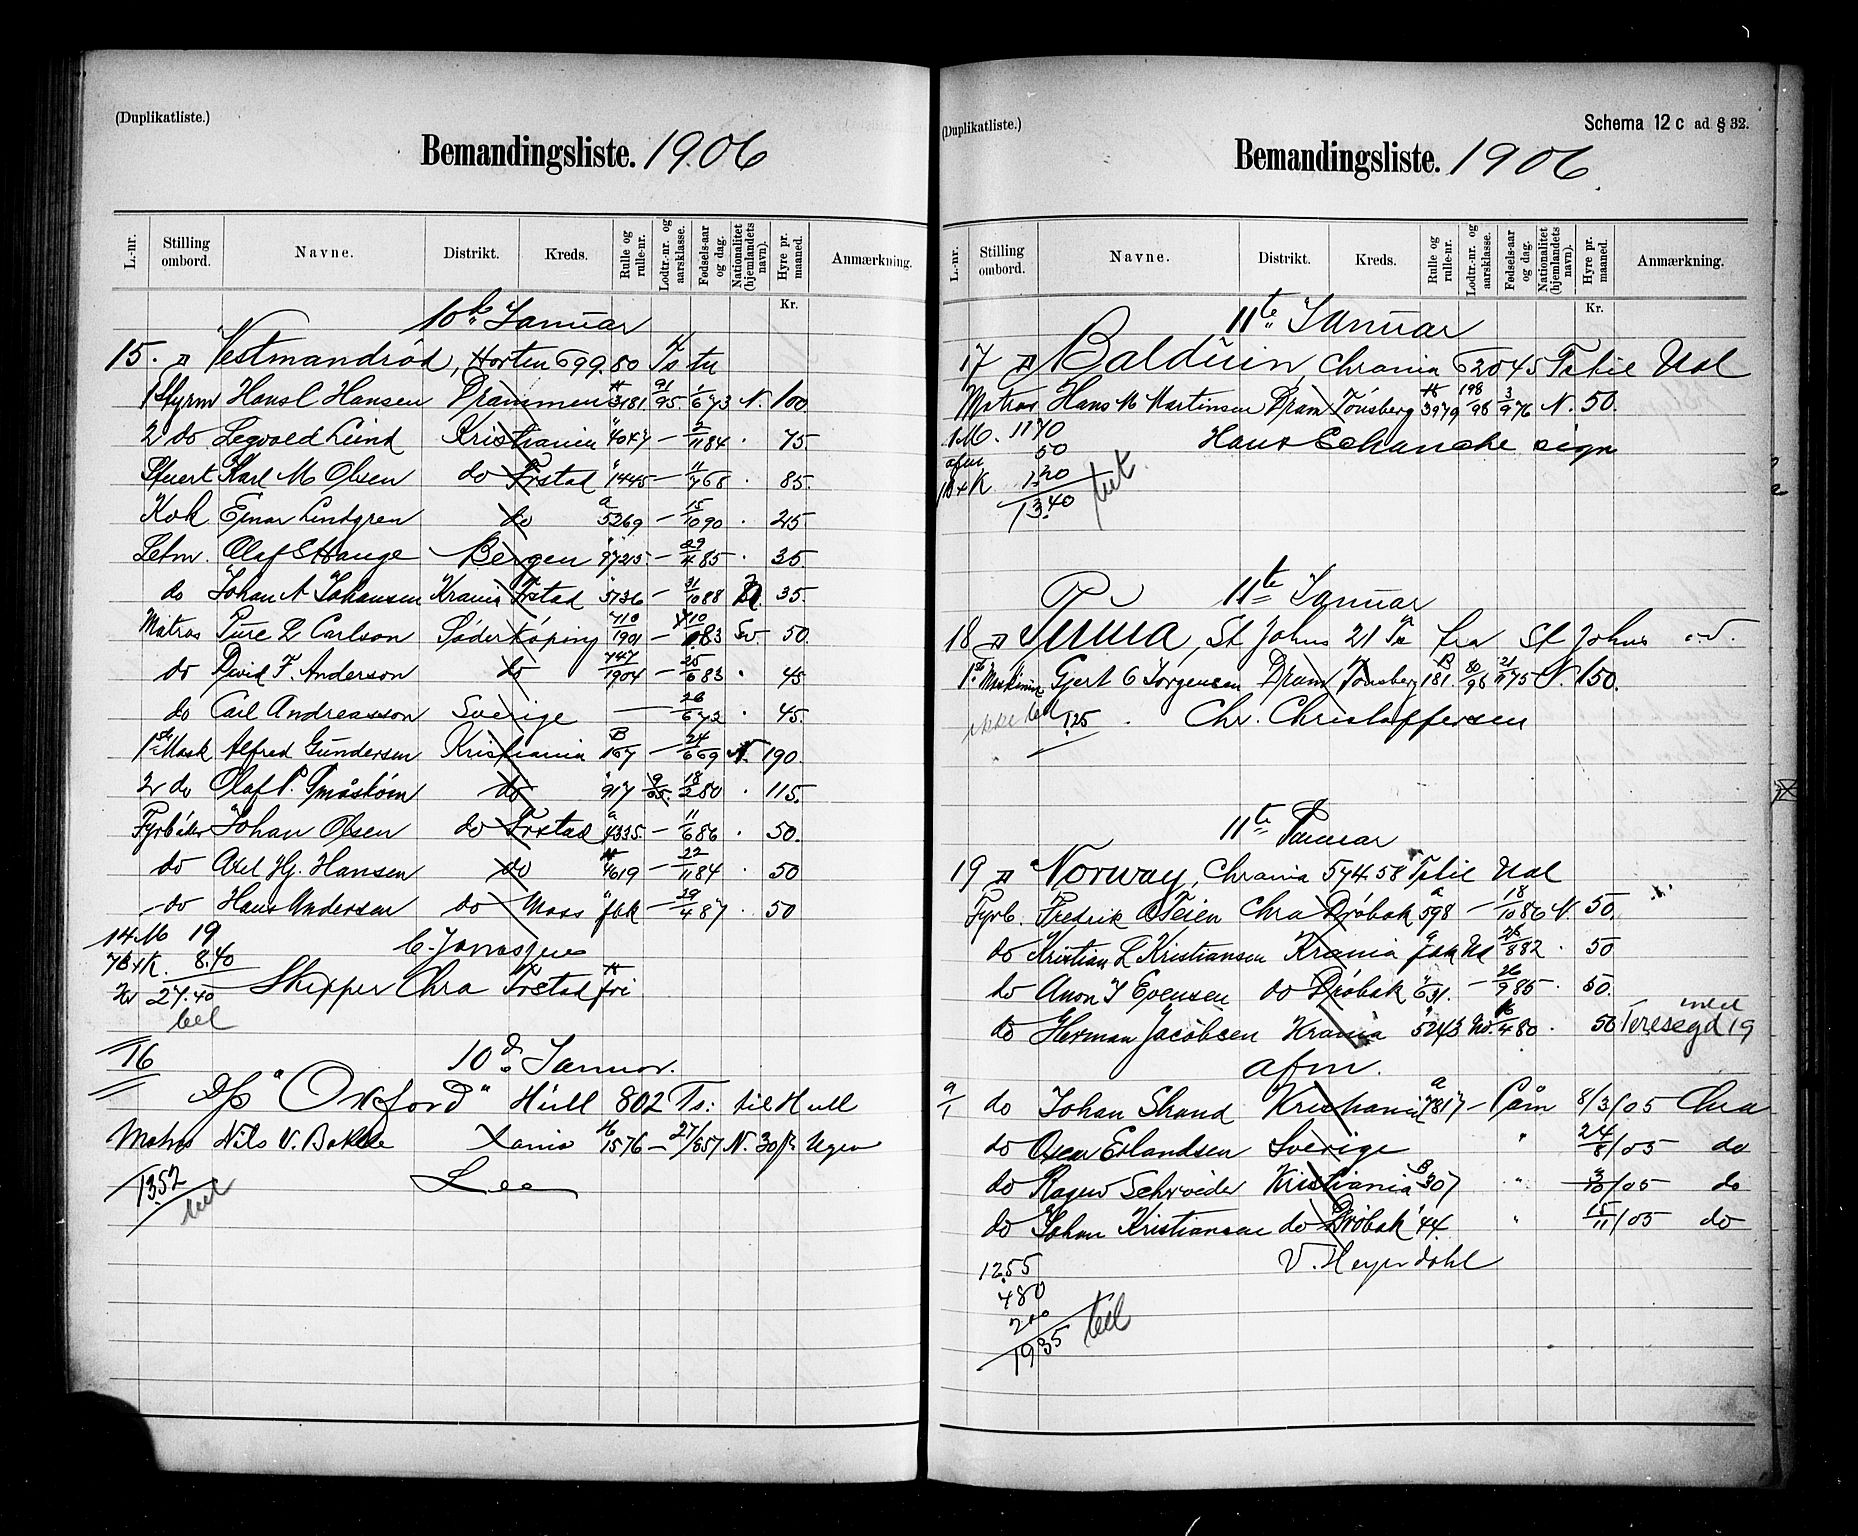 (Duplikatliste.)
Bemandingsliste. 1906
L.-nr. Stilling ombord. Navne. Distrikt. Kreds. Rulle og rulle-nr. Lodtr.-nr. og aarsklasse. Fødsels-aar og dag. Nationalitet (hjemlandets navn). Hyre pr. maaned. Anmærkning.
Kr.
10de Januar
15. Vestmandrød, Horten 699.80 Ts
1 Styrm Hans C Hansen Drammen 3181 91/95 1/6 73 N. 100
2 do Segvald Lund Kristiania 4047 — 2/11 84 · 75.
Stuert Karl M Olsen do Frstad 1445 — 11/7 68 · 85.
Kok Ejnar Lindgren do a 5269 — 15/10 90 · 25
Letm. Olaf E Hauge Bergen 97215 — 29/4 85 · 35
do Johan A Johansen Krania Frstad 5736 — 31/10 88 35.
Matros Ture L Carlson Søderköping 710/1901 — 83 Sv. 50.
do David F. Anderson do 747/1904 — 25/6 83 · 45
do Carl Andreasson Sverige — 26/6 72 · 45.
1ste Mask Alfred Gundersen Kristiania B 167 — 24/6 69 N. 190.
2 do Olaf P. Småstöm do 917 18/2 80 · 115.
Fyrbøder Johan Olsen do Frstad a 4335 — 11/6 86 · 50.
do Axel Hj. Hansen do 4619 — 22/11 84 · 50
do Hans Andersen do Moss fak — 29/4 87 · 50
14 M 19
7 B+K. 8.40
Kr 27.40
bet
Skipper Chra Frstad fri
16 10de Januar.
D/S "Oxford" Hull 802 Ts: til Hull
Matros Nils V. Bakke Xania 1576 — 27/8 57 N. 30 p. Ugen
1352
bet
Lee
(Duplikatliste.)
Schema 12 c ad § 32.
Bemandingsliste. 1906
L.-nr. Stilling ombord. Navne. Distrikt. Kreds. Rulle og rulle-nr. Lodtr.-nr. og aarsklasse. Fødsels-aar og dag. Nationalitet (hjemlandets navn). Hyre pr. maaned. Anmærkning.
Kr.
11te Januar
17 Balduin, Chrania 62045 Ts til Udl
Matros Hans M Martinsen Dram Tønsberg 3979 198/98 3/9 76 N. 50.
1 M. 1170
50
120
1340
bet
Hans Schancke sign
11te Januar
18 St Johns 21 Ts fra St Johns
1ste Maskinm Gjert C Jørgensen Dram Tønsberg B 181. 80/98 21/11 75 N. 150.
ikke bet 125
Chr. Christoffersen
11te Januar
19 Norway, Chrania 574.58 Ts til Udl
Fyrb. Fredrik O Teien Chra Drøbak a 598 — 18/10 86 N. 50.
do Kristian L Kristiansen Krania fak 8 82 · 50
do Anon J Evensen do Drøbak 631. — 26/9 85 · 50.
do Herman Jacobsen Krania 5243 16/4 80 · 50
afm.
9/1 do Johan Strand Kristiania a 7817 — Påm 8/3/05 Chra
do Oscar Erlandsen Sverige " 24/8/05 do
do Ragnv Schrøder Kristiania B 307 " 3/10/05 do
do Johan Kristiansen do Drøbak 44. " 15/11/05 do
V. Heyerdahl
1255
480
200
1935
bet